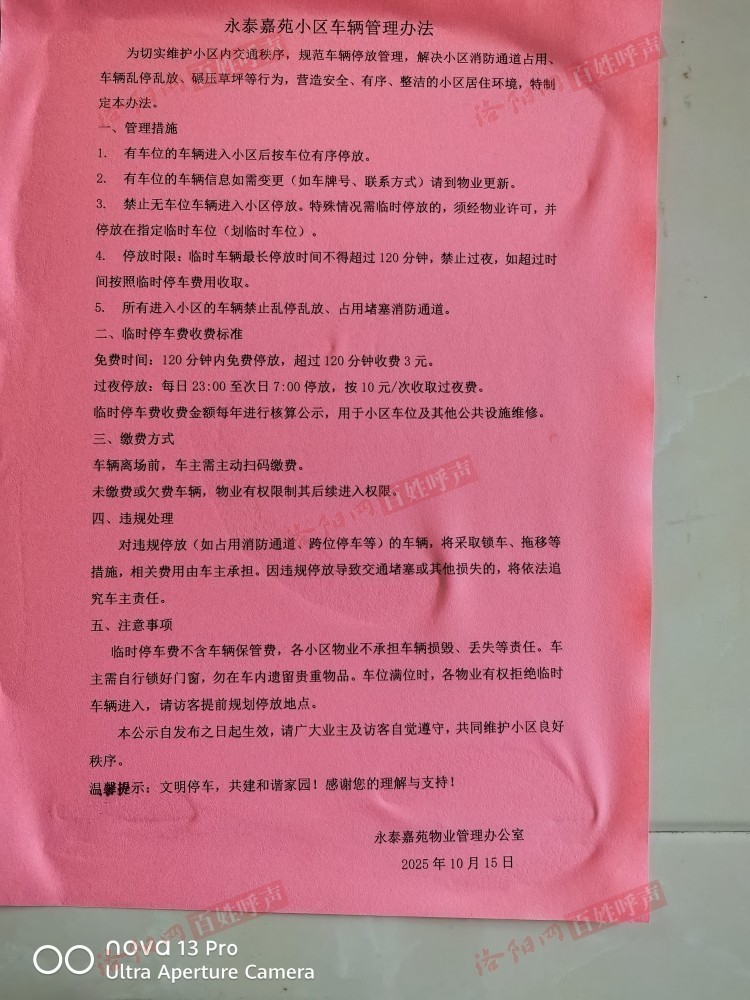 永泰嘉苑小区车辆管理办法
为切实维护小区内交通秩序，规范车辆停放管理，解决小区消防通道占用、
车辆乱停乱放、碾压草坪等行为，营造安全、有序、整洁的小区居住环境，特制
定本办法。
一、管理措施
1. 有车位的车辆进入小区后按车位有序停放。
2. 有车位的车辆信息如需变更（如车牌号、联系方式）请到物业更新。
3. 禁止无车位车辆进入小区停放。特殊情况需临时停放的，须经物业许可，并
停放在指定临时车位（划临时车位）。
4. 停放时限：临时车辆最长停放时间不得超过 120 分钟，禁止过夜，如超过时
间按照临时停车费用收取。
5. 所有进入小区的车辆禁止乱停乱放、占用堵塞消防通道。
二、临时停车费收费标准
免费时间：120 分钟内免费停放，超过 120 分钟收费 3 元。
过夜停放：每日 23:00 至次日 7:00 停放，按 10 元/次收取过夜费。
临时停车费收费金额每年进行核算公示，用于小区车位及其他公共设施维修。
三、缴费方式
车辆离场前，车主需主动扫码缴费。
未缴费或欠费车辆，物业有权限制其后续进入权限。
四、违规处理
对违规停放（如占用消防通道、跨位停车等）的车辆，将采取锁车、拖移等
措施，相关费用由车主承担。因违规停放导致交通堵塞或其他损失的，将依法追
究车主责任。
五、注意事项
临时停车费不含车辆保管费，各小区物业不承担车辆损毁、丢失等责任。车
主需自行锁好门窗，勿在车内遗留贵重物品。车位满位时，各物业有权拒绝临时
车辆进入，请访客提前规划停放地点。
本公示自发布之日起生效，请广大业主及访客自觉遵守，共同维护小区良好
秩序。
温馨提示：文明停车，共建和谐家园！感谢您的理解与支持！
永泰嘉苑物业管理办公室
2025 年 10 月 15 日
洛阳网 百姓呼声
洛阳网 百姓呼声
洛阳网 百姓呼声
洛阳网 百姓呼声
洛阳网 百姓呼声
nova 13 Pro
Ultra Aperture Camera